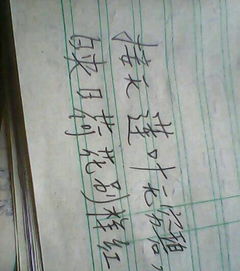 接天莲叶无穷碧，
映日荷花别样红